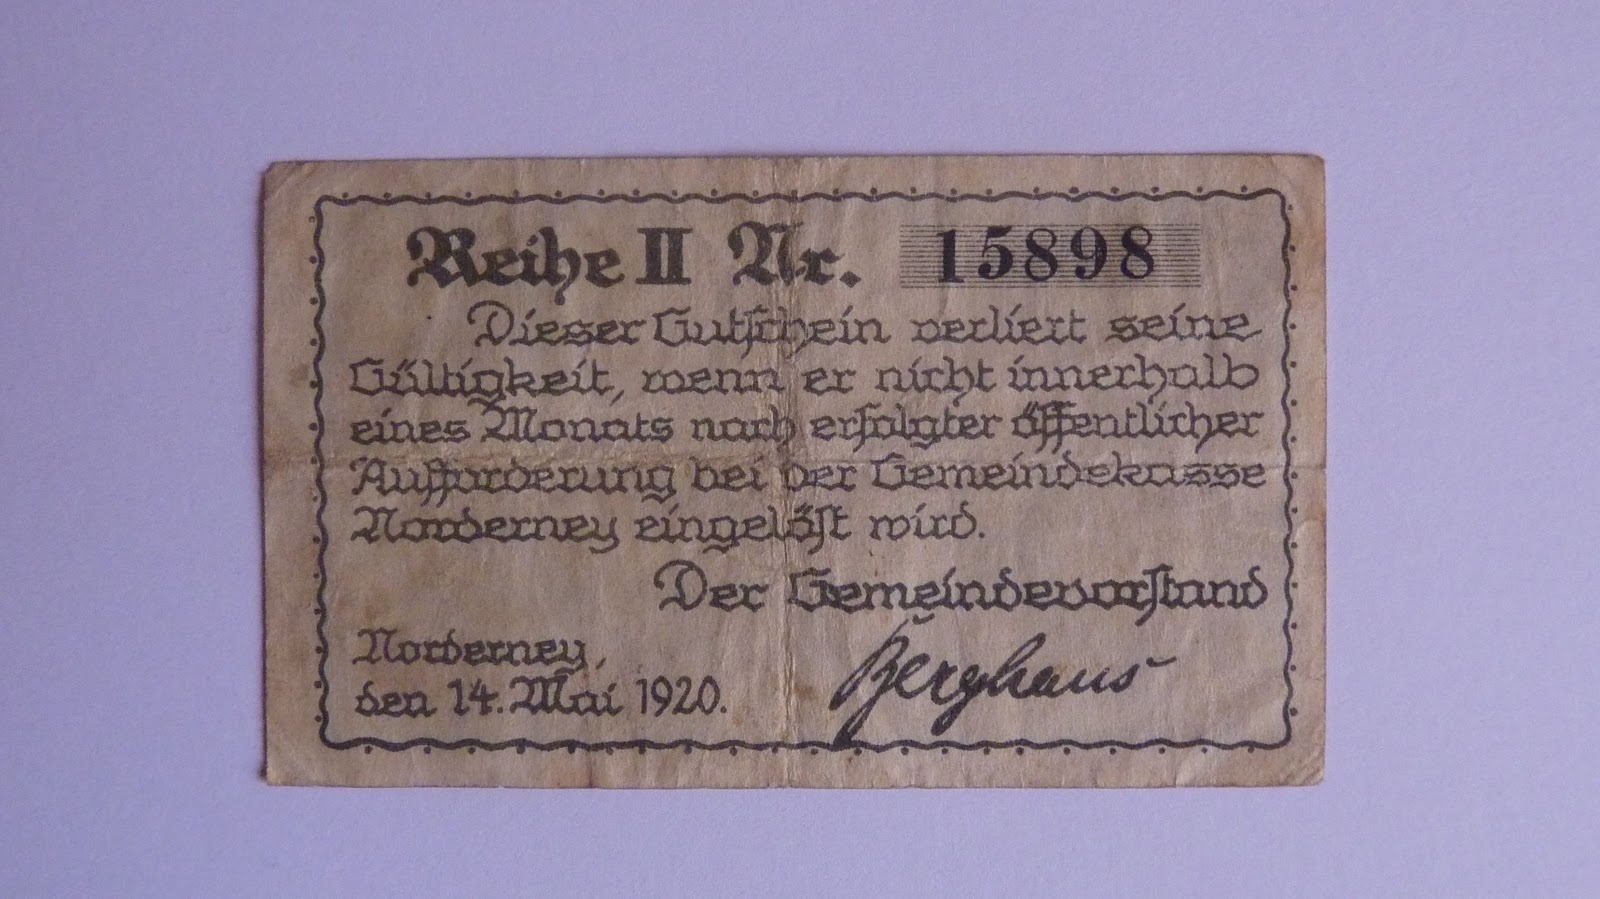 Reihe II Nr. 15898
Dieser Gutschein verliert seine
Gültigkeit, wenn er nicht innerhalb
eines Monats nach erfolgter öffentlicher
Aufforderung bei der Gemeindekasse
Norderney eingelöst wird.
Der Gemeindevorstand
Norderney,
den 14. Mai 1920.
Berghaus